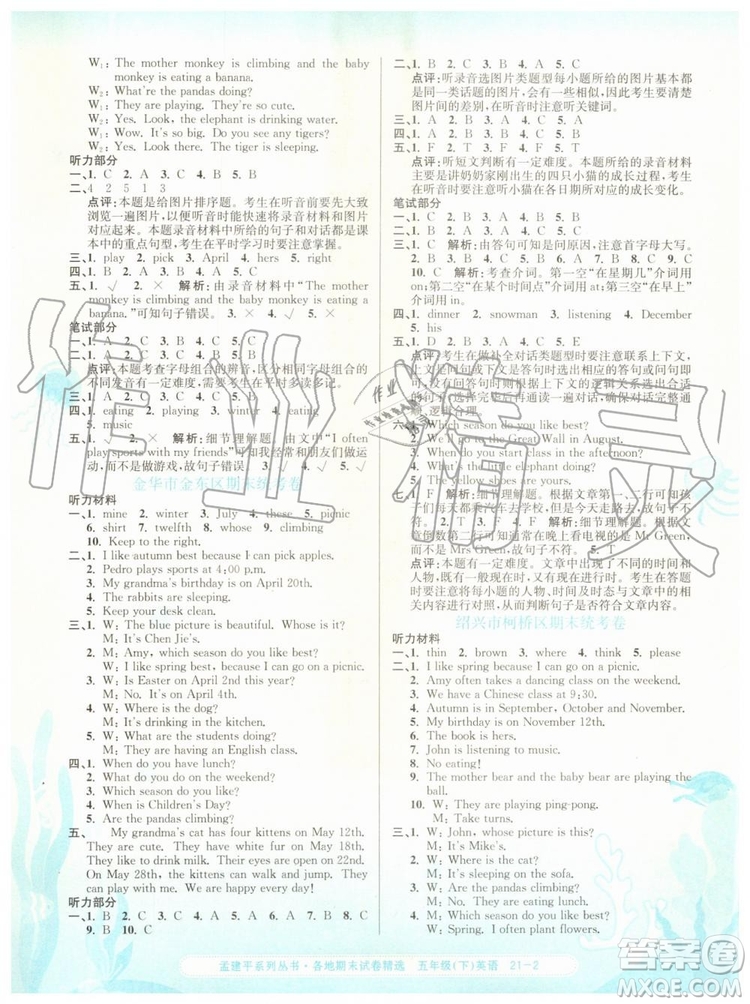 W₁: The mother monkey is climbing and the baby
monkey is eating a banana.
W₂: What're the pandas doing?
W₁: They are playing. They're so cute!
W₂: Yes. Look, the elephant is drinking water.
W₁: Wow. It's so big. Do you see any tigers?
W₂: Yes. Look there. The tiger is sleeping.
听力部分
一、1. C 2. A 3. C 4. B 5. C
二、4 2 5 1 3
点评:本题是给图片排序题。考生在听音前要先大致
浏览一遍图片,以便听音时能快速将录音材料和图片
对应起来。本大题给出的录音材料和对话都是课
本中的重点句型,考生在平时学习时要注意掌握。
三、1. play 2. pick 3. April 4. hers 5. right
四、1. B 2. A 3. A 4. B 5. C
五、1. √ 2. × 解析:由录音材料中“The mother
monkey is climbing and the baby monkey is eating a
banana.”可知句子错误。 3. × 4. √ 5. √
笔试部分
一、1. A 2. B 3. C 4. A 5. B
二、1. C 2. B 3. C 4. A 5. A
点评:本题考查字母组合的辨音,区分相同字母组合的
不同发音有一定难度,需要考生在平时多读多记。
三、1. C 2. B 3. A 4. B 5. C
四、1. ealing 2. playing 3. winter 4. eating
5. music
五、1. √ 2. × 解析:细节理解题。由文中“I often
play sports with my friends.”可知我经常和朋友们做运动
而不是做游戏,故句子错误。
金华市金东区期末统考卷
听力材料
一、1. mine 2. winter 3. July 4. these 5. picnic
6. shirt 7. twelfth 8. whose 9. climbing
10. Keep to the right.
二、1. I like autumn best because I can pick apples.
2. Pedro plays sports at 4:00 p.m.
3. My grandma's birthday is on April 20th.
4. The rabbits are sleeping.
5. Keep your desk clean.
三、1. W: The blue picture is beautiful. Whose is it?
M: It's Chen Jie's.
2. M: Amy, which season do you like best?
W: I like spring best because I like flowers.
3. W: Is Easter on April 5th?
M: No. It's on April 4th.
4. W: Where is the dog?
M: It's drinking in the kitchen.
5. W: What are the students doing?
M: They are having an English class.
四、1. When do you have lunch?
2. What do you do on the weekend?
3. When is Children's Day?
4. Are the pandas climbing?
5. Which season do you like best?
五、My grandma's cat has four kittens on May 12th.
They are cute. They are white and have pink
noses. On May 18th, the kittens can open their
eyes. They like to drink milk. They sleep a lot.
On May 28th, the kittens can walk and jump. They
can play with me. We are happy every day!
听力部分
一、1. B 2. C 3. C 4. B 5. A 6. A 7. B 8. C
9. B 10. C
二、1. C 2. B 3. A 4. A 5. C
点评:听录音选图片类题型每小题所给的图片基本都
是同一类话题的图片,因此考生一定要注意看清楚
图片之间的差别,在听音时注意听关键词。
三、1. A 2. B 3. A 4. B 5. C
四、1. A 2. B 3. A 4. B 5. C
五、1. F 2. T 3. T 4. F 5. T
点评:听短文判断有一定难度。本题所给的录音材料
主要是讲奶奶家刚出生的四只小猫的成长过程,因此
在听音时要注意听小猫在各日期所对应的成长变化。
笔试部分
一、1. C 2. B 3. A 4. B 5. C
三、1. C 解析:由答句可知是问原因,注意首字母大写。
2. B 3. C 4. A 5. C 6. C 7. A 8. B 9. B
10. C 解析:考查介词。第一空“在星期几”介词用
on;第二空“在某个时间点”介词用at;第三空“在早上”
介词用in。
四、1. dinner 2. snowman 3. listening 4. December
5. his
五、1. F 2. D 3. A 4. C 5. E
1. Which season do you like best?
2. We'll go to the Great Wall in August.
3. Is school over in the afternoon?
4. What is the little elephant doing?
5. The yellow shoes are yours.
点评:本题有一定难度。文中出现了不同的时间和
人物,也大致描述了不同时间不同人物的活动,因此
人物,既大概一致又略有不同,因此需要考生在答题
时要将每小题的人物、时间和活动与原文一一对应。
绍兴市柯桥区期末统考卷
听力材料
一、1. thin 2. brown 3. where 4. think 5. please
二、1. I like spring because I like flowers.
2. Amy often takes a dancing class on weekend.
3. We have a Chinese class at 9:30.
4. Autumn is in September, October and November.
5. My birthday is on November 12th.
6. The book is hers.
7. John is listening to music.
8. Be quiet!
9. The mother bear and the baby bear are playing the
ball.
10. W: They are playing ping-pong.
M: Take turns.
三、1. W: John, whose picture is this?
M: It's Mike's.
2. W: Is the cat sleeping on the bed?
M: It is sleeping on the sofa.
3. W: Are the pandas climbing?
M: No, they aren't. They are eating bamboo.
4. M: Which season do you like best?
W: Spring. I often plant flowers.
孟建平系列丛书·各地期末试卷精选 五年级(下)英语 21-2
作业精灵
答案圈